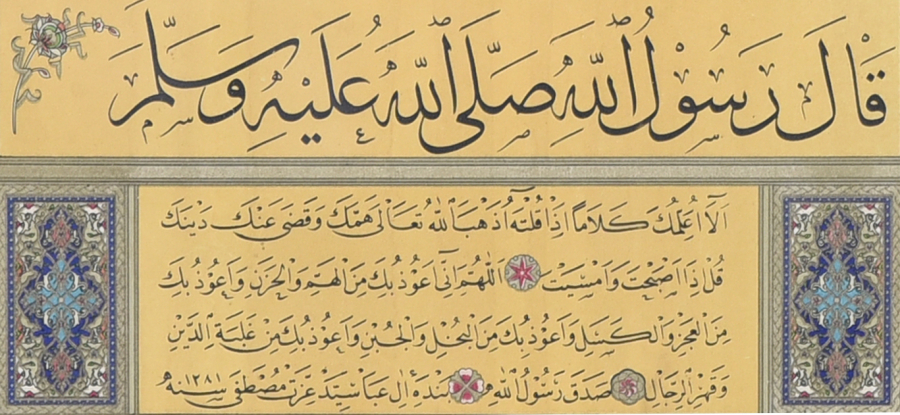 قَالَ رَسُوْلُ اللّٰهِ صَلَّى اللّٰهُ عَلَيْهِ وَسَلَّمَ
اَلَا اُعَلِّمُكَ كَلَامًا اِذَا قُلْتَهُ اَذْهَبَ اللّٰهُ تَعَالٰى هَمَّكَ وَقَضٰى عَنْكَ دَيْنَكَ
قُلْ اِذَا اَصْبَحْتَ وَاَمْسَيْتَ اَللّٰهُمَّ اِنِّى اَعُوْذُ بِكَ مِنَ الْهَمِّ وَالْحَزَنِ وَاَعُوْذُ بِكَ
مِنَ الْعَجْزِ وَالْكَسَلِ وَاَعُوْذُ بِكَ مِنَ الْبُخْلِ وَالْجُبْنِ وَاَعُوْذُ بِكَ مِنْ غَلَبَةِ الدَّيْنِ
وَقَهْرِ الرِّجَالِ صَدَقَ رَسُوْلُ اللّٰهِ بندهٔ آل عبا سيد عزت مصطفى سنه ١٢٨١